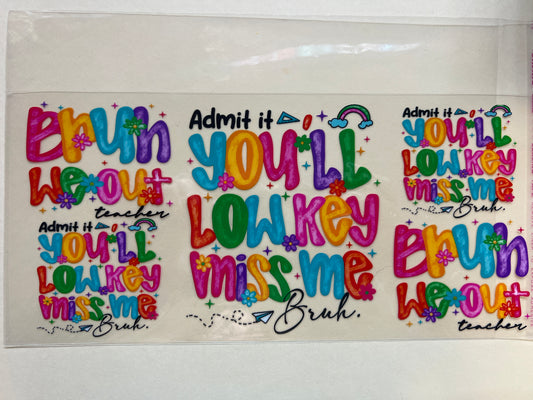 Bruh
we out
teacher
Admit it
YOU'LL
LOW KEY
miss me
Bruh.
Admit it
YOU'LL
LOW KEY
miss me
Bruh.
Admit it
YOU'LL
LOW KEY
miss me
Bruh.
Bruh
we out
teacher